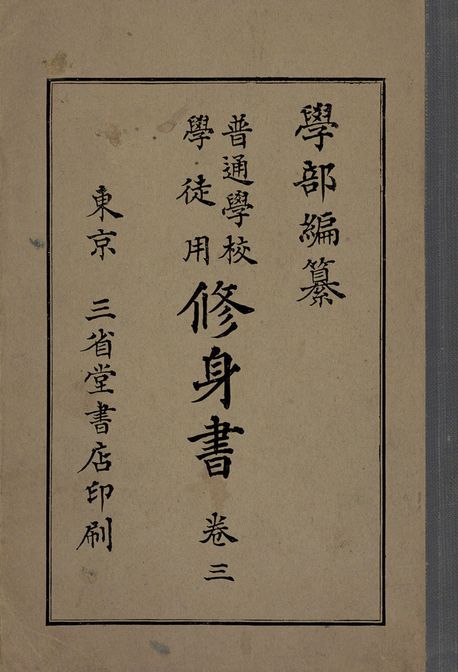 學部編纂
普通學校
學徒用
修身書 卷三
東京 三省堂書店印刷